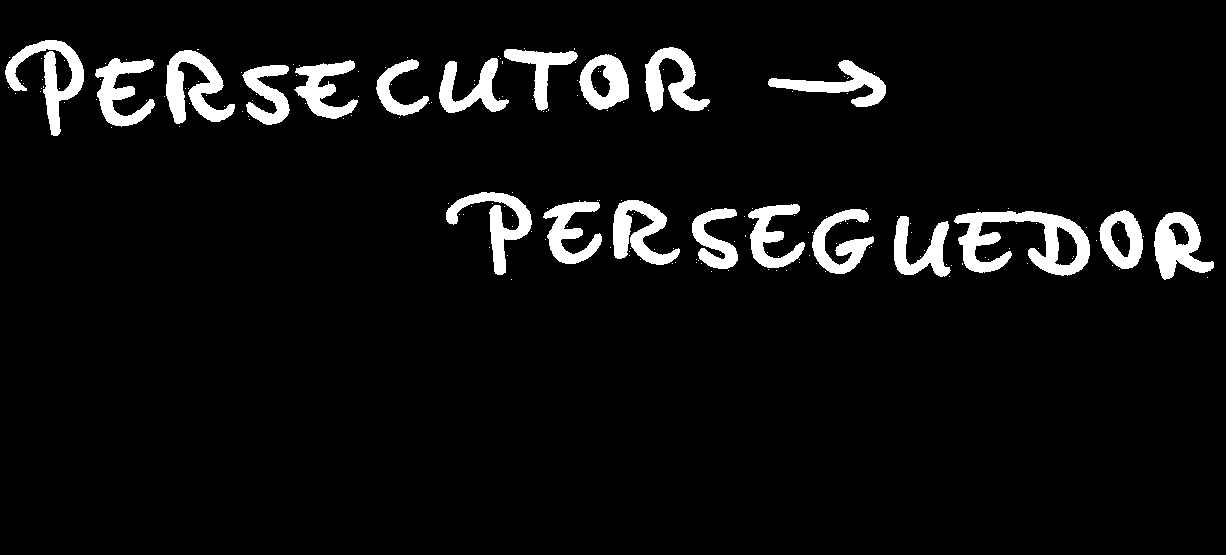 PERSECUTOR →
PERSEGUEDOR